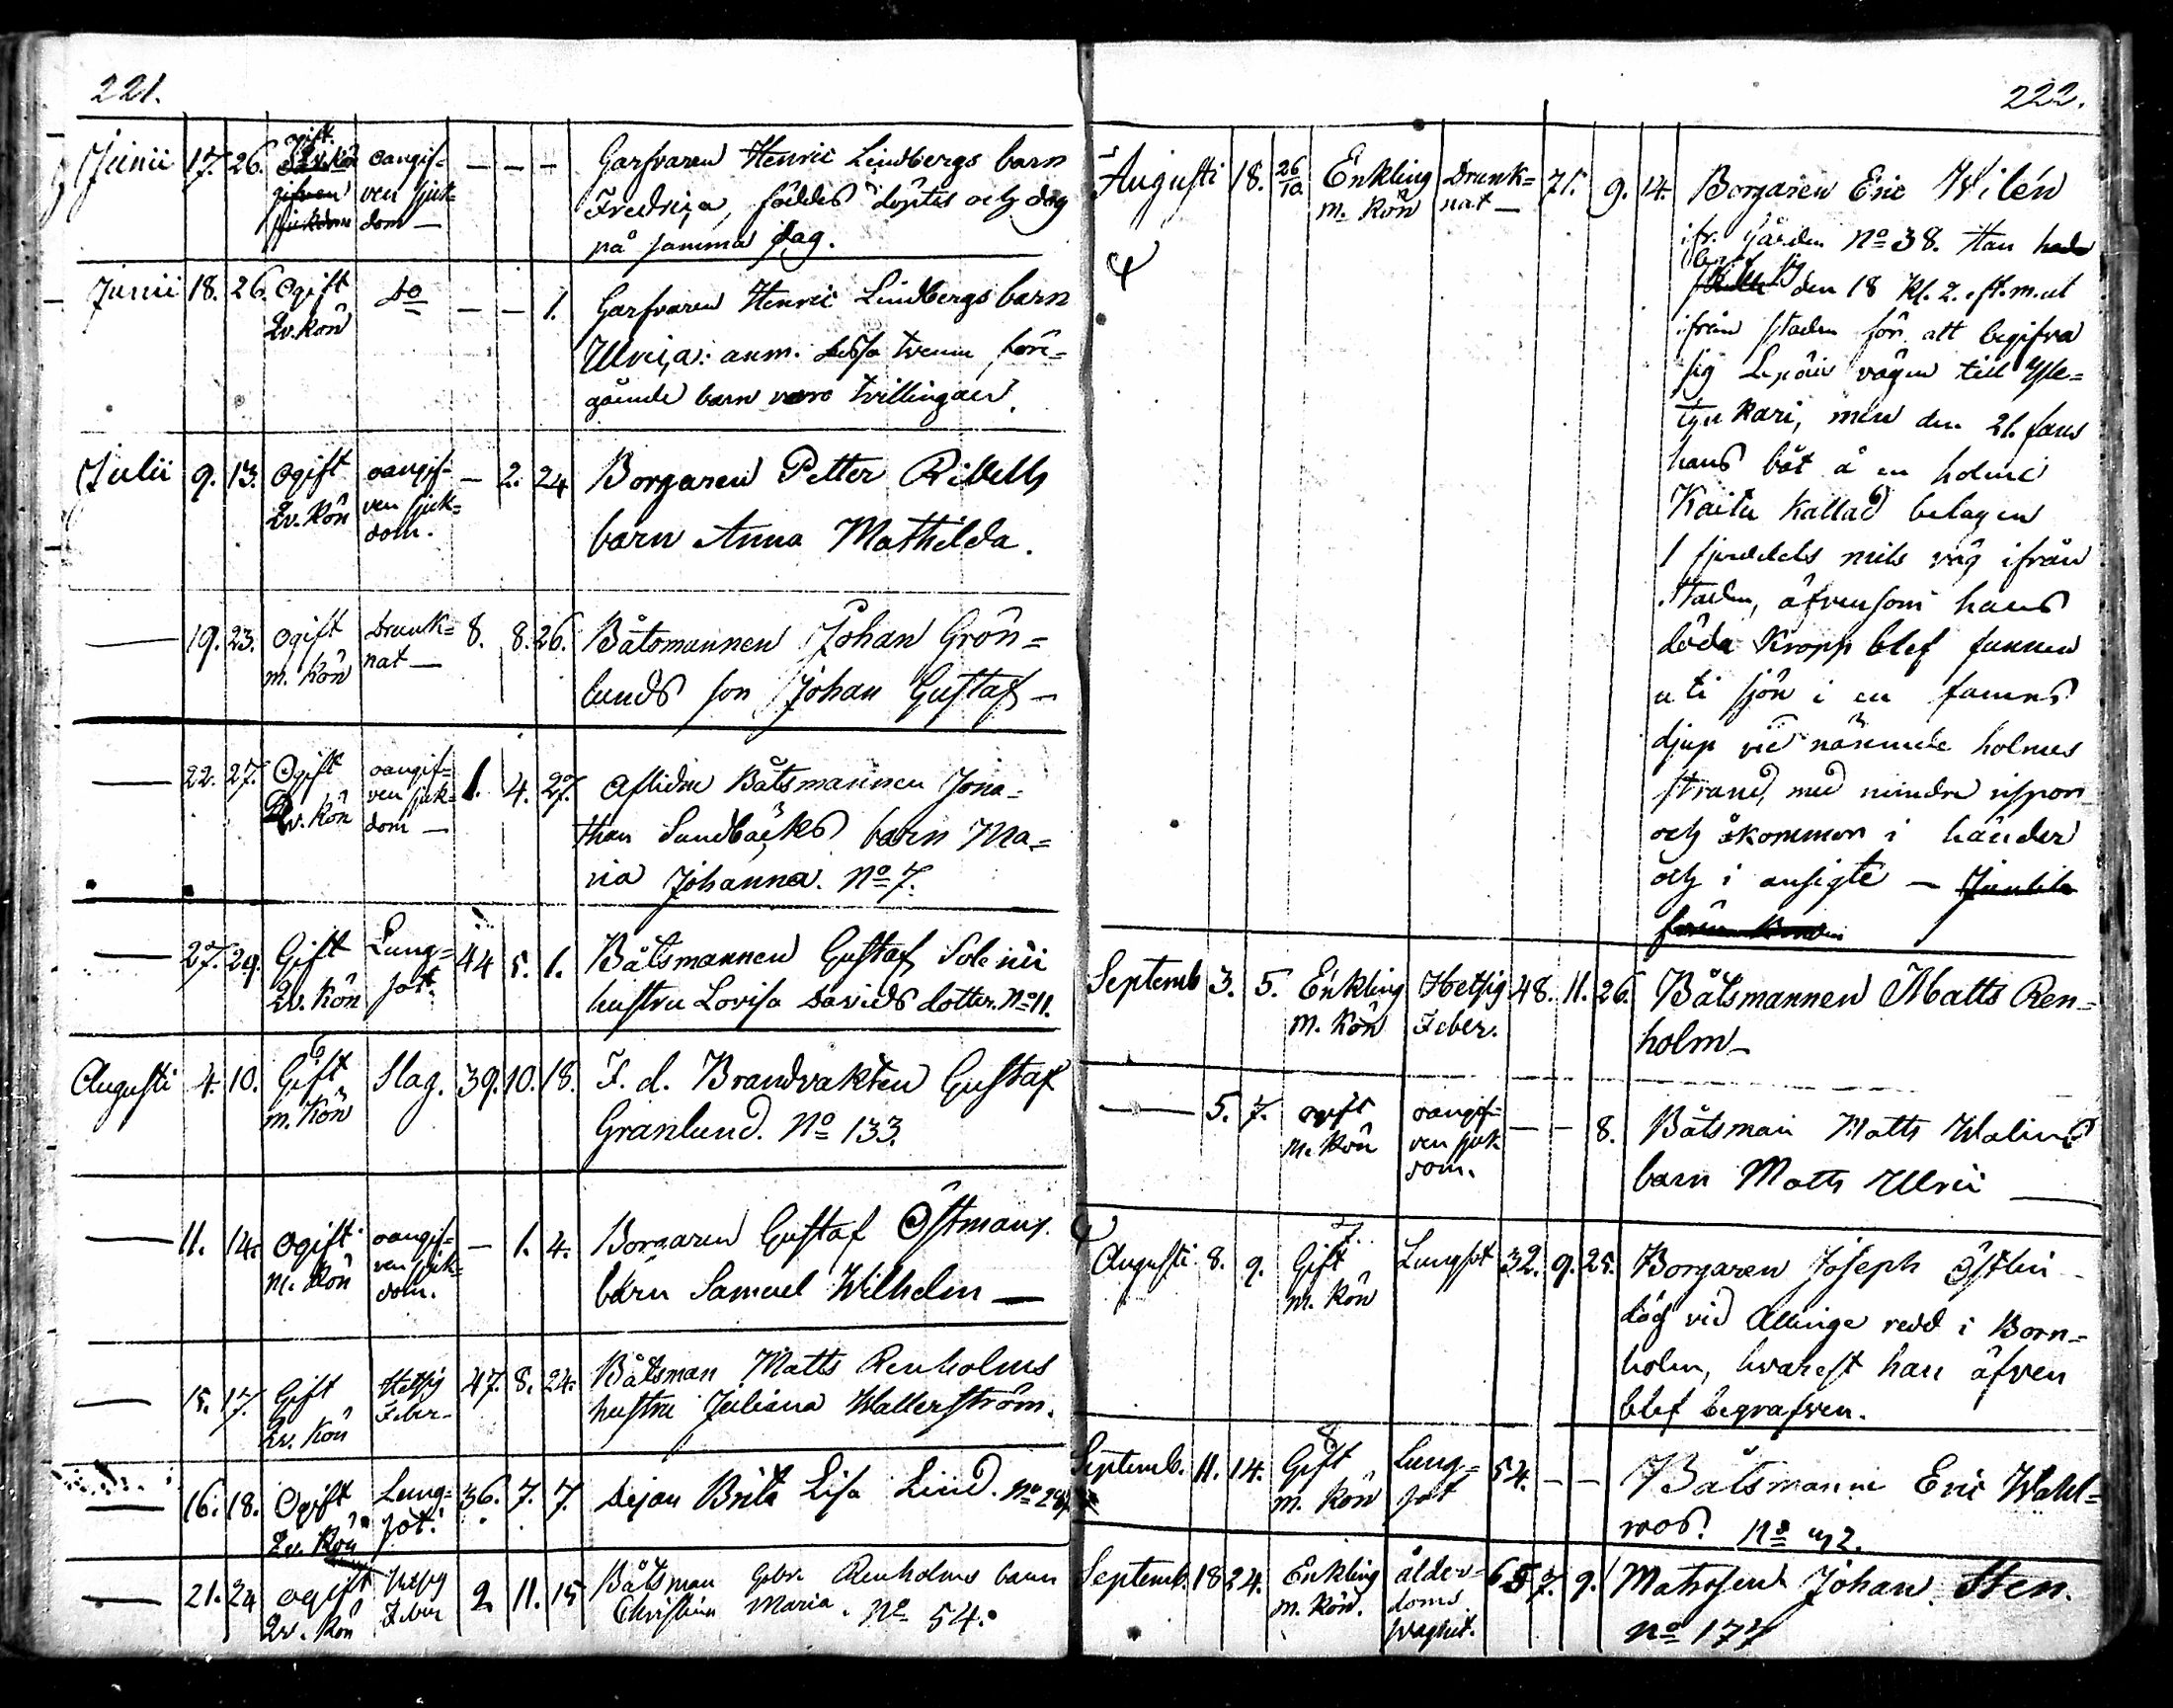 221.
Junii 17. 26. ogift. Qv. kön oangif= ven sjuk= dom — — — — Garfvaren Henric Lindbergs barn
Fredrica, föddes döptes och dog
på samma dag.
Junii 18. 26. Ogift Qv. kön do — — 1. Garfvaren Henric Lindbergs barn
Ulrica: anm. dessa tvenne före=
gående barn voro tvillingar.
Julii 9. 13. ogift Qv. kön oangif= ven sjuk= dom. — 2. 24 Borgaren Petter
barn Anna Mathilda.
— 19. 23. ogift m. kön Drunk= nat — 8. 8. 26. Båtsmannen Johan Grön=
lunds son Johan Gustaf —
— 22. 27. Ogift Qv. kön oangif= ven sjuk= dom — 1. 4. 27. Aflidne Båtsmannen Jona=
than Sundbäcks barn Ma=
ria Johanna. No 7.
— 27. 29. Gift Qv. kön Lung= sot. 44 5. 1. Båtsmannen Gustaf
hustru Lovisa Davids dotter. No 11.
Augusti 4. 10. Gift m. kön 6 Slag. 39. 10. 18. F. d. Brandvakten Gustaf
Granlund. No 133.
— 11. 14. ogift m. kön oangif= ven sjuk= dom. — 1. 4. Borgaren Gustaf Östmans
barn Samuel Wilhelm —
— 15. 17. Gift Qv. kön Hetsig Feber. 47. 8. 24. Båtsman Matts Renholms
hustru Juliana Wallerström.
— 16. 18. Ogift Qv. kön Lung= sot. 36. 7. 7. Pigan Brita Lisa Lind.
— 21. 24 ogift Qv. kön Hetsig Feber 2. 11. 15 Båtsman Gabr. Renholms barn
Christina Maria. No 54.
222.
Augusti 18. 26/10 Enkling m. kön Drunk= nat — 71. 9. 14. Borgaren Eric Wilén
ifr. Gården No 38. Han
den 18 Kl. 2. eft. m. ut
ifrån staden för att begifva
sig Lepäis vägen till Yle=
tyn kari, men den 21. fans
hans båt å en holme
Kaita kallad belagen
1 fjerdedels mils väg ifrån
Staden, äfvensom hans
döda kropp blef funnen
uti sjön i en famns
djup vid nämnde holmes
strand, med mindre rispor
och åkommor i händer
och i ansigte —
Septemb 3. 5. Enkling m. kön Hetsig Feber. 48. 11. 26. Båtsmannen Matts Ren=
holm —
— 5. 7. ogift m. kön oangif= ven sjuk dom. — — 8. Båtsman Matts Walins
barn Matts Ulric —
Augusti 8. 9. 7. Gift m. kön Lungsot 32. 9. 25. Borgaren Joseph Östlin
dög vid Allinge redd i Born=
holm, hvarest han äfven
blef begrafven.
Septemb. 11. 14. 8 Gift m. kön Lung= sot 54. — — Båtsmanne Eric Wahl=
roos.
Septemb. 18 24. Enkling m. kön. ålder= doms svaghet. 65 7. 9. Matrosen Johan Sten.
No 177